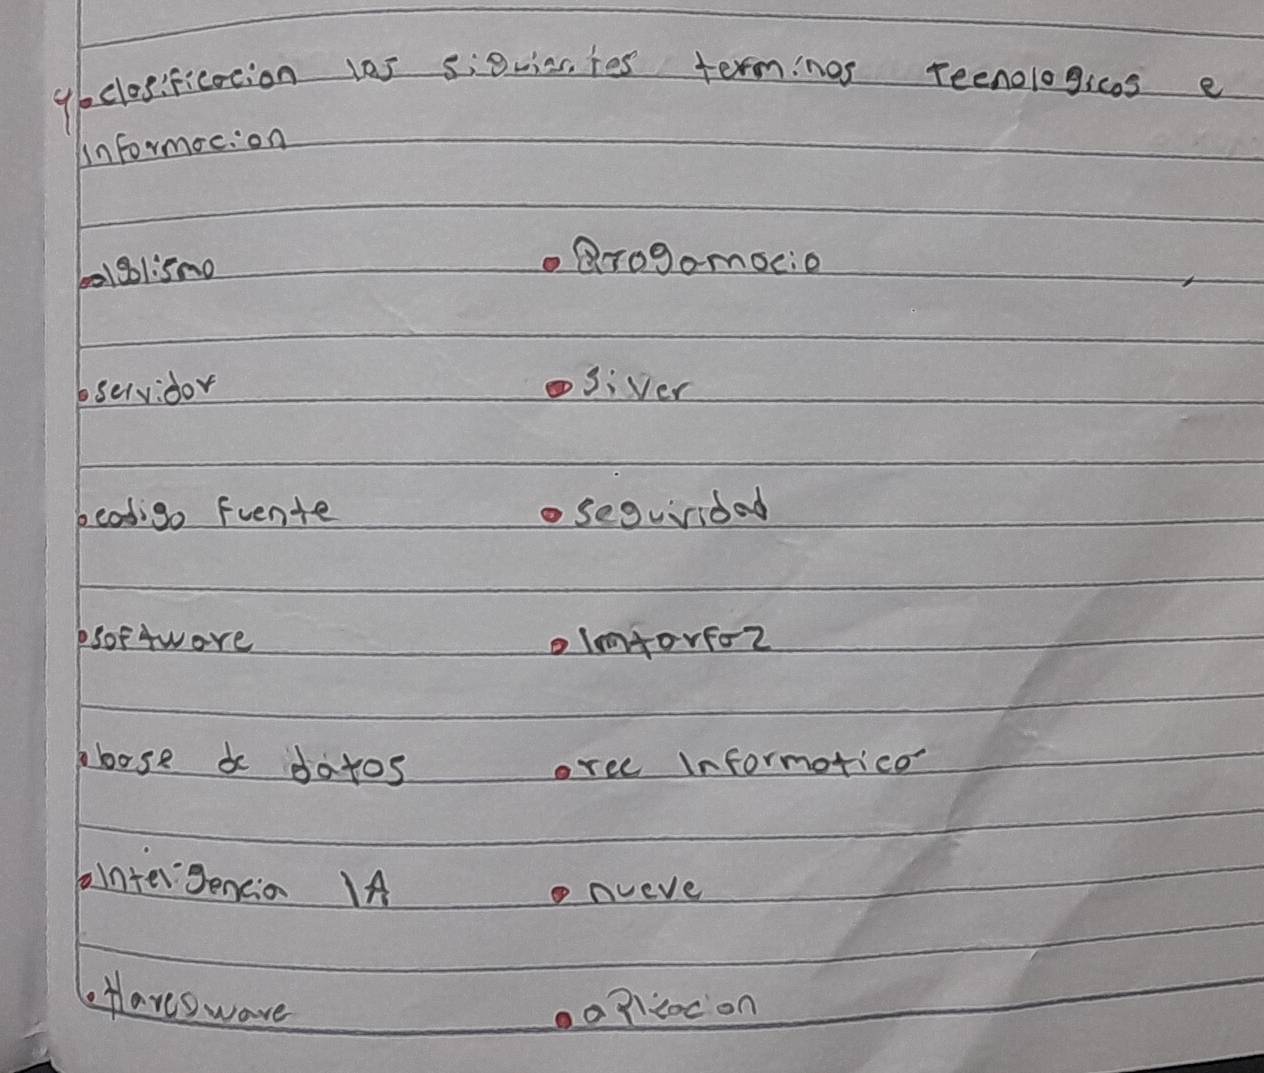 4. clasificacion las siguientes terminos tecnologicos e
informacion
algolismo • Progamacio
• servidor • Siver
• codigo fuente • seguiridad
• software • Imtarfaz
• base de datos • rec informatica
• Inteligencia IA • nueve
• Haresware • aplicacion